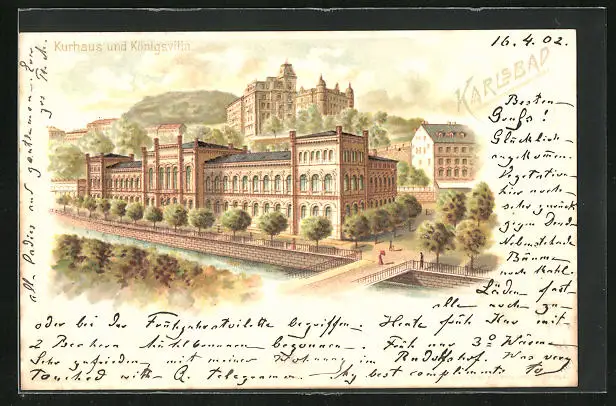 Kurhaus und Königsvilla.
16.4.02.
KARLSBAD
Besten
Gruß!
Glücklich
angekommen.
Vegetation
hier noch
sehr zurück
Nebenstehende
Bäume
noch kahl.
Läden fast
alle noch zu
oder bei der Frühjahrstoilette begriffen. Heute früh Kur mit
2 Bechern Mühlbrunnen begonnen. Früh nur 3° Wärme
Sehr zufrieden mit meiner Wohnung im Rudolfshof. Was very
touched with telegramm. My best compliments to
all Ladies and gentlemen.